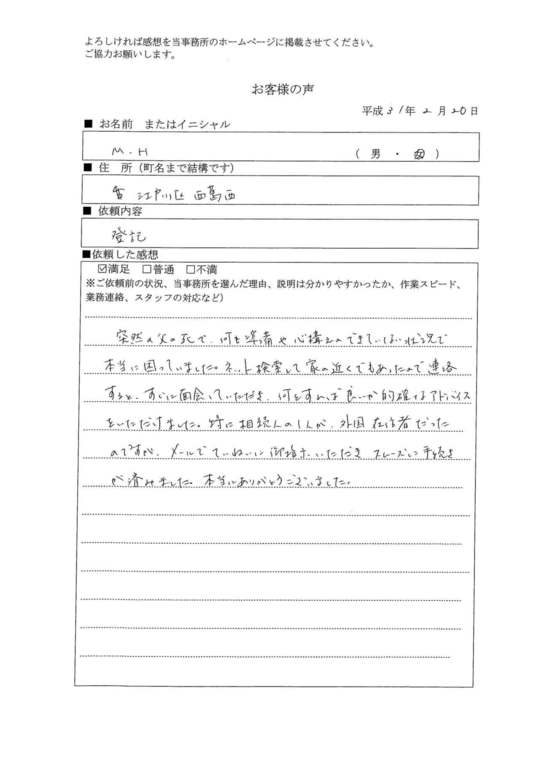 よろしければ感想を当事務所のホームページに掲載させてください。
ご協力お願いします。
お客様の声
平成31年2月20日
■ お名前 またはイニシャル
M.H
( 男 ・ 女 )
■ 住 所 (町名まで結構です)
江戸川区 西葛西
■ 依頼内容
登記
■依頼した感想
☑満足 □普通 □不満
※ご依頼前の状況、当事務所を選んだ理由、説明は分かりやすかったか、作業スピード、
業務連絡、スタッフの対応など)
突然の父の死で、何も準備や心構えのできていない状況で
本当に困っていました。ネット検索して家の近くでもあったので連絡
すると、すぐに面会していただき、何をすれば良いか的確なアドバイス
をいただけました。特に相続人の1人が、外国在住者だった
のですが、メールでていねいに御指示いただき スムーズに手続き
が済みました。本当にありがとうございました。